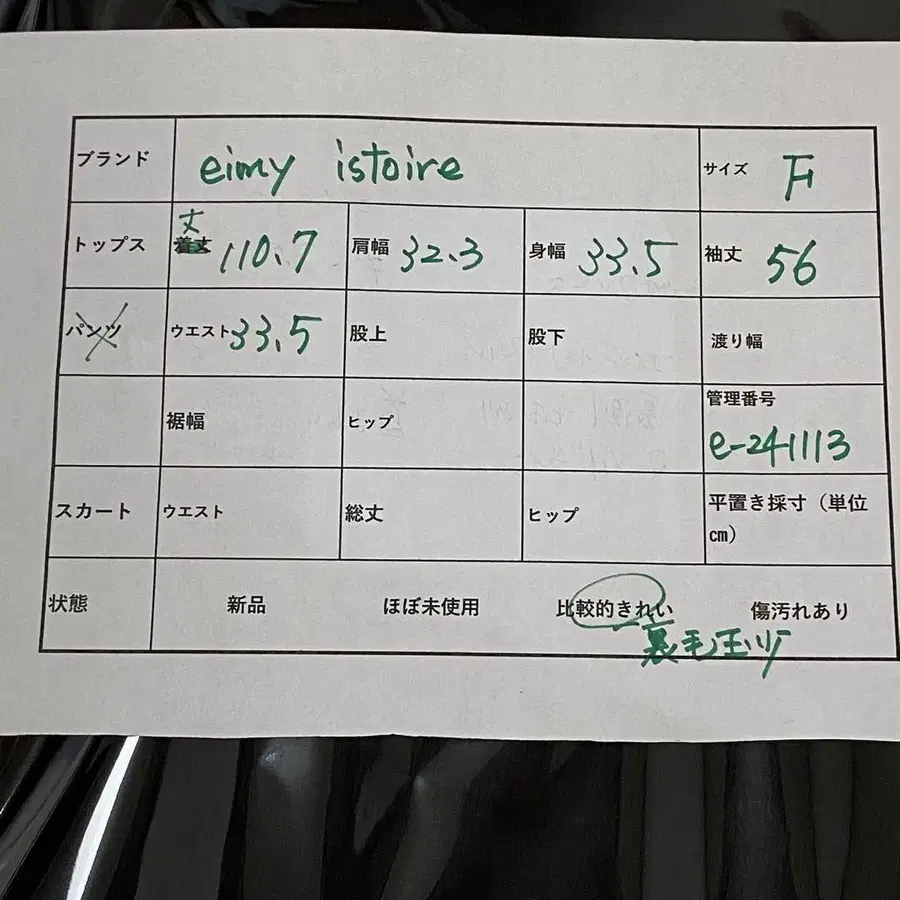 ブランド eimy istoire サイズ F
丈
トップス 着丈 110.7 肩幅 32.3 身幅 33.5 袖丈 56
パンツ ウエスト 33.5 股上 股下 渡り幅
裾幅 ヒップ 管理番号
e-241113
スカート ウエスト 総丈 ヒップ 平置き採寸（単位
㎝）
状態 新品 ほぼ未使用 比較的きれい 傷汚れあり
裏毛玉少